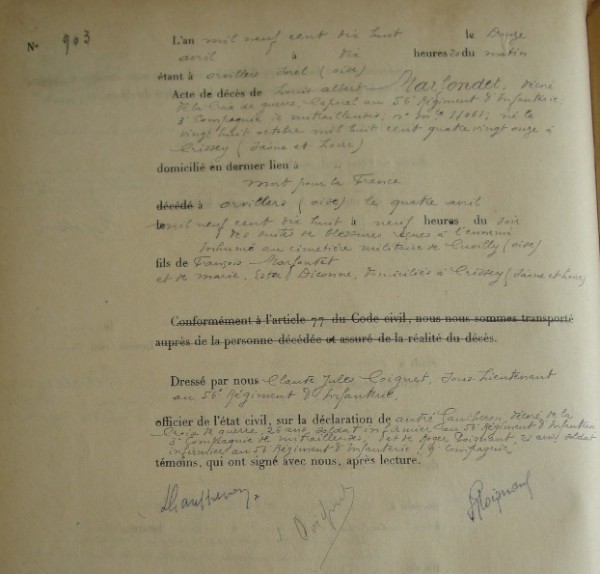 N° 903
L'an mil neuf cent dix huit le Douze
avril à dix heures du matin
étant à orvillers Sorel (oise)
Acte de décès de Louis albert Marfondet, décoré
de la Croix de guerre, Caporal au 56e Régiment d'Infanterie,
3e Compagnie de mitrailleuses, né le
vingt huit octobre mil huit cent quatre vingt onze à
Crissey (Saône et Loire)
domicilié en dernier lieu à
mort pour la France
décédé à orvillers (oise) le quatre avril
le mil neuf cent dix huit à neuf heures du soir
des suites de blessures reçues à l'ennemi
Inhumé au cimetière militaire de Cuvilly (oise)
fils de François Marfondet
et de marie, Ester Diconne, domiciliés à Crissey (Saône et Loire)
Conformément à l'article 77 du Code civil, nous nous sommes transporté
auprès de la personne décédée et assuré de la réalité du décès.
Dressé par nous Claude Jules Coignet, Sous Lieutenant
au 56e Régiment d'Infanterie
officier de l'état civil, sur la déclaration de andré, décoré de la
Croix de guerre, 26 ans, soldat infirmier au 56e Régiment d'Infanterie
3e Compagnie de mitrailleuses, et de Roger Poignant, ans, soldat
infirmier au 56e Régiment d'Infanterie, Compagnie
témoins, qui ont signé avec nous, après lecture.
Poignant